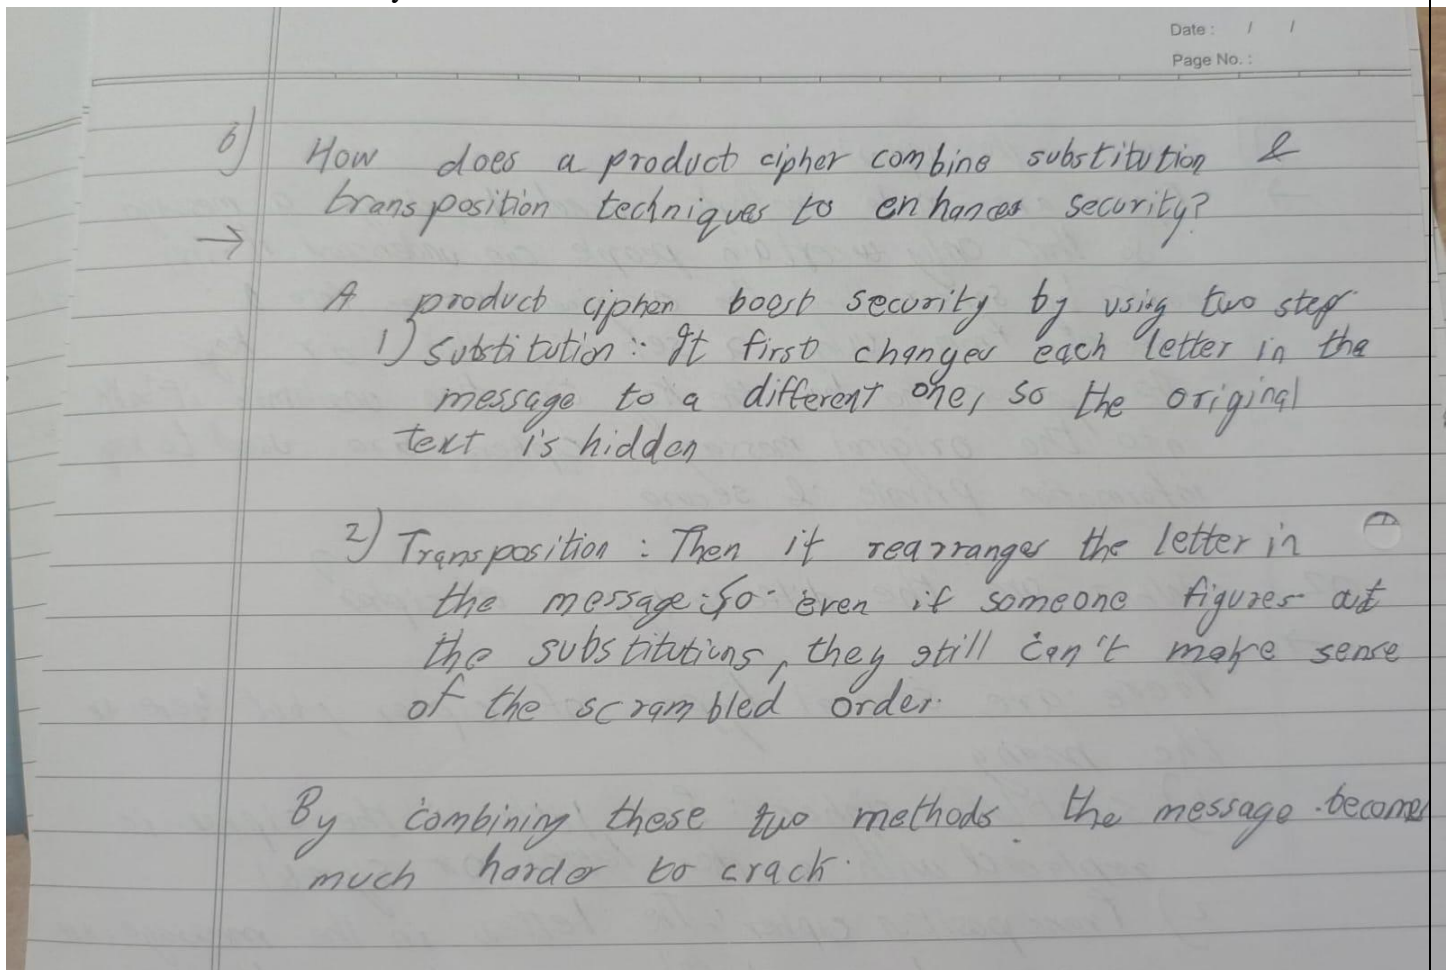 Date : / /
Page No. :
6) How does a product cipher combine substitution &
transposition techniques to enhances security?
→
A product cipher boost security by using two step
1) Substitution : It first changes each letter in the
message to a different one, so the original
text is hidden
2) Transposition : Then it rearranges the letter in
the message. So even if someone figures out
the substitutions, they still can't make sense
of the scrambled order.
By combining these two methods the message becomes
much harder to crack.